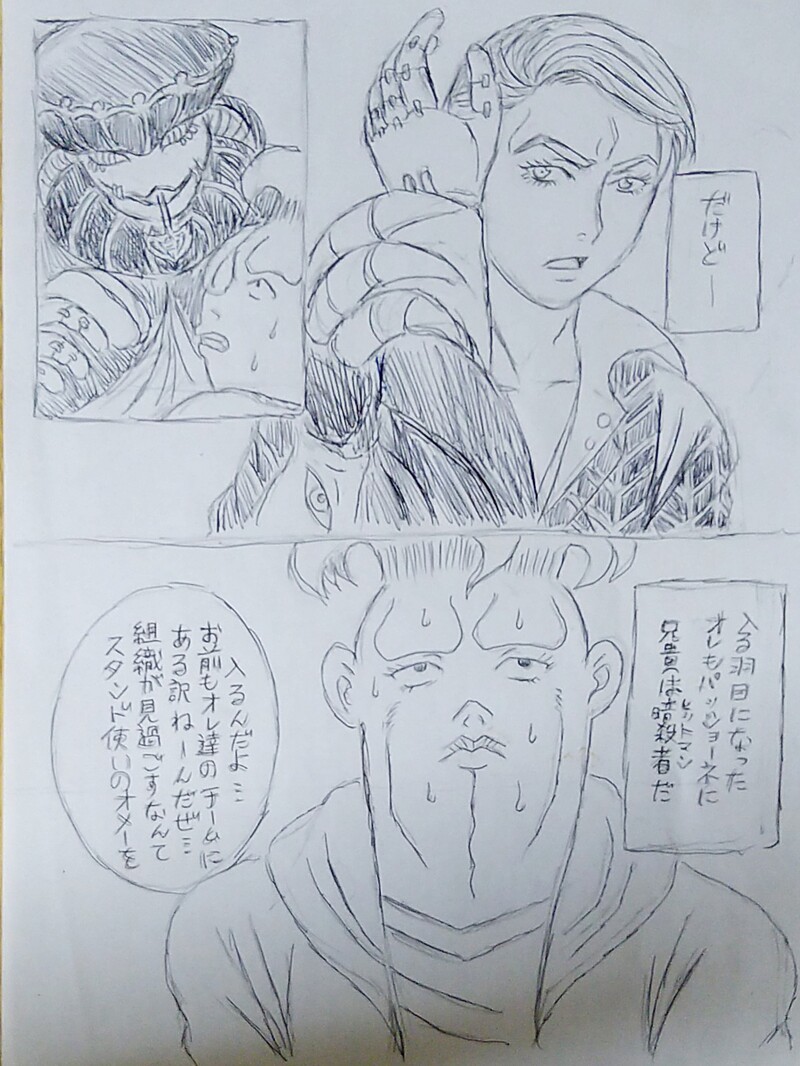 だけど―
スタンド使いのオメーを
組織が見過ごすなんて
ある訳ねーんだぜ…
お前もオレ達のチームに
入るんだよ…
兄貴は暗殺者だ
ヒットマン
オレもパッショーネに
入る羽目になった